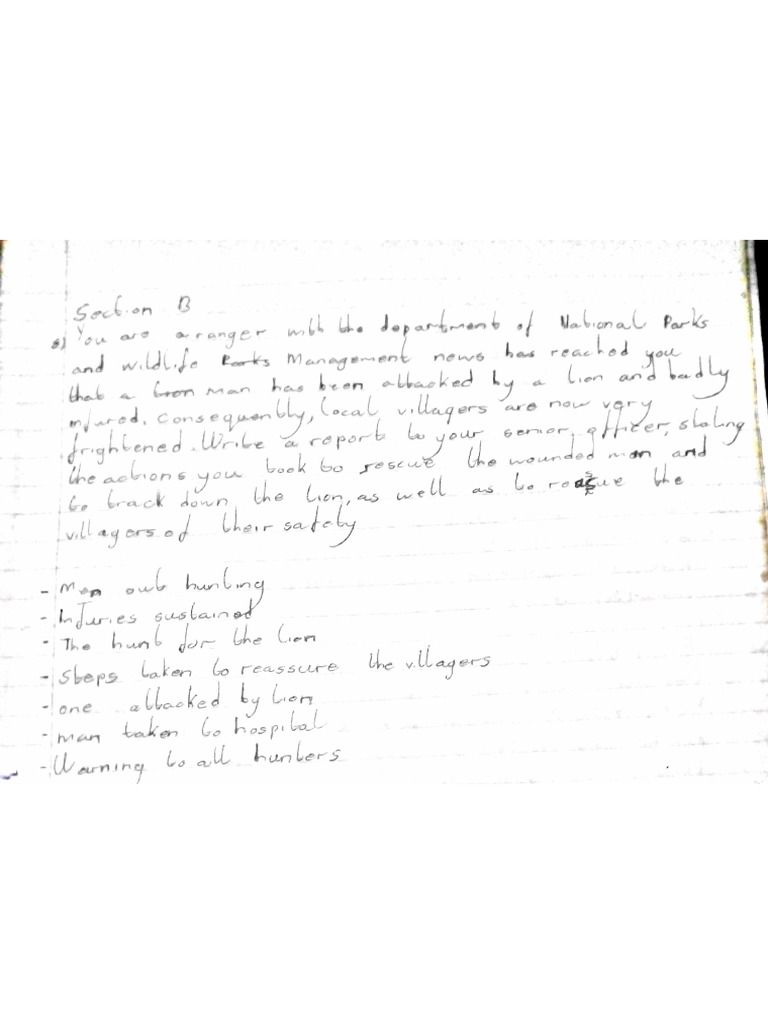 Section B
8) You are a ranger with the department of National Parks
and wildlife Parks Management news has reached you
that a lion man has been attacked by a lion and badly
injured. Consequently, local villagers are now very
frightened. Write a report to your senior officer, stating
the actions you took to rescue the wounded man and
to track down the lion, as well as to the
villagers of their safety
- Men out hunting
- Injuries sustained
- The hunt for the lion
- Steps taken to reassure the villagers
- one attacked by lion
- man taken to hospital
- Warning to all hunters